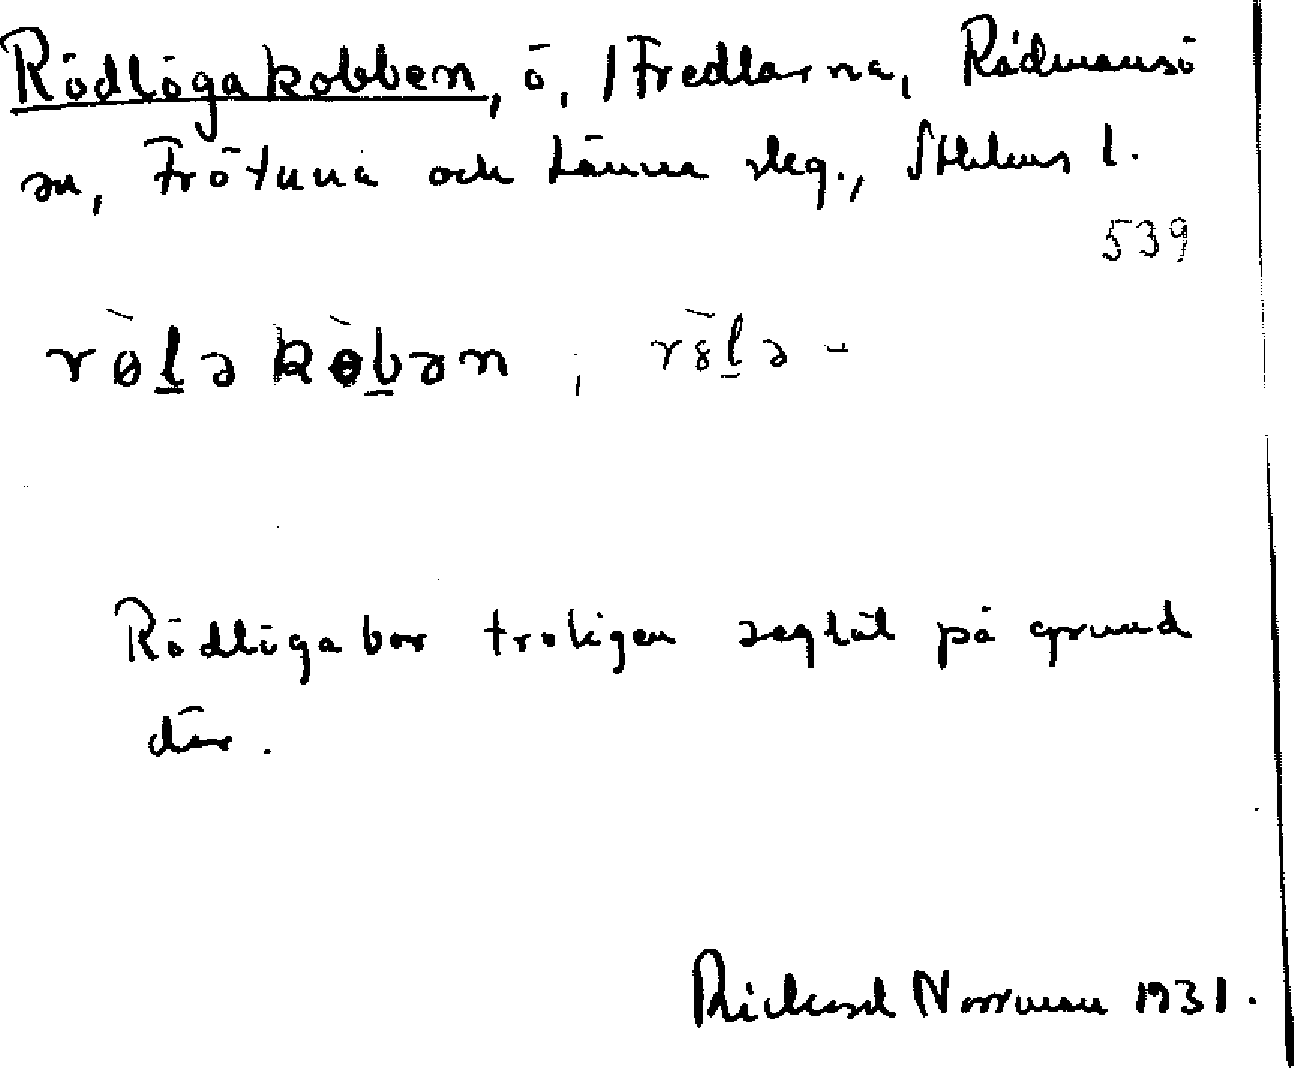 Rödlögakobben, ö, /Fredlarna, Rådmansö
sn, Frötuna och Länna skg., Sthlms l.
539
rò̵lə kò̵bən ; rò̵lə -
Rödlögabor troligen seglat på grund
där.
Rickard Norrman 1931.